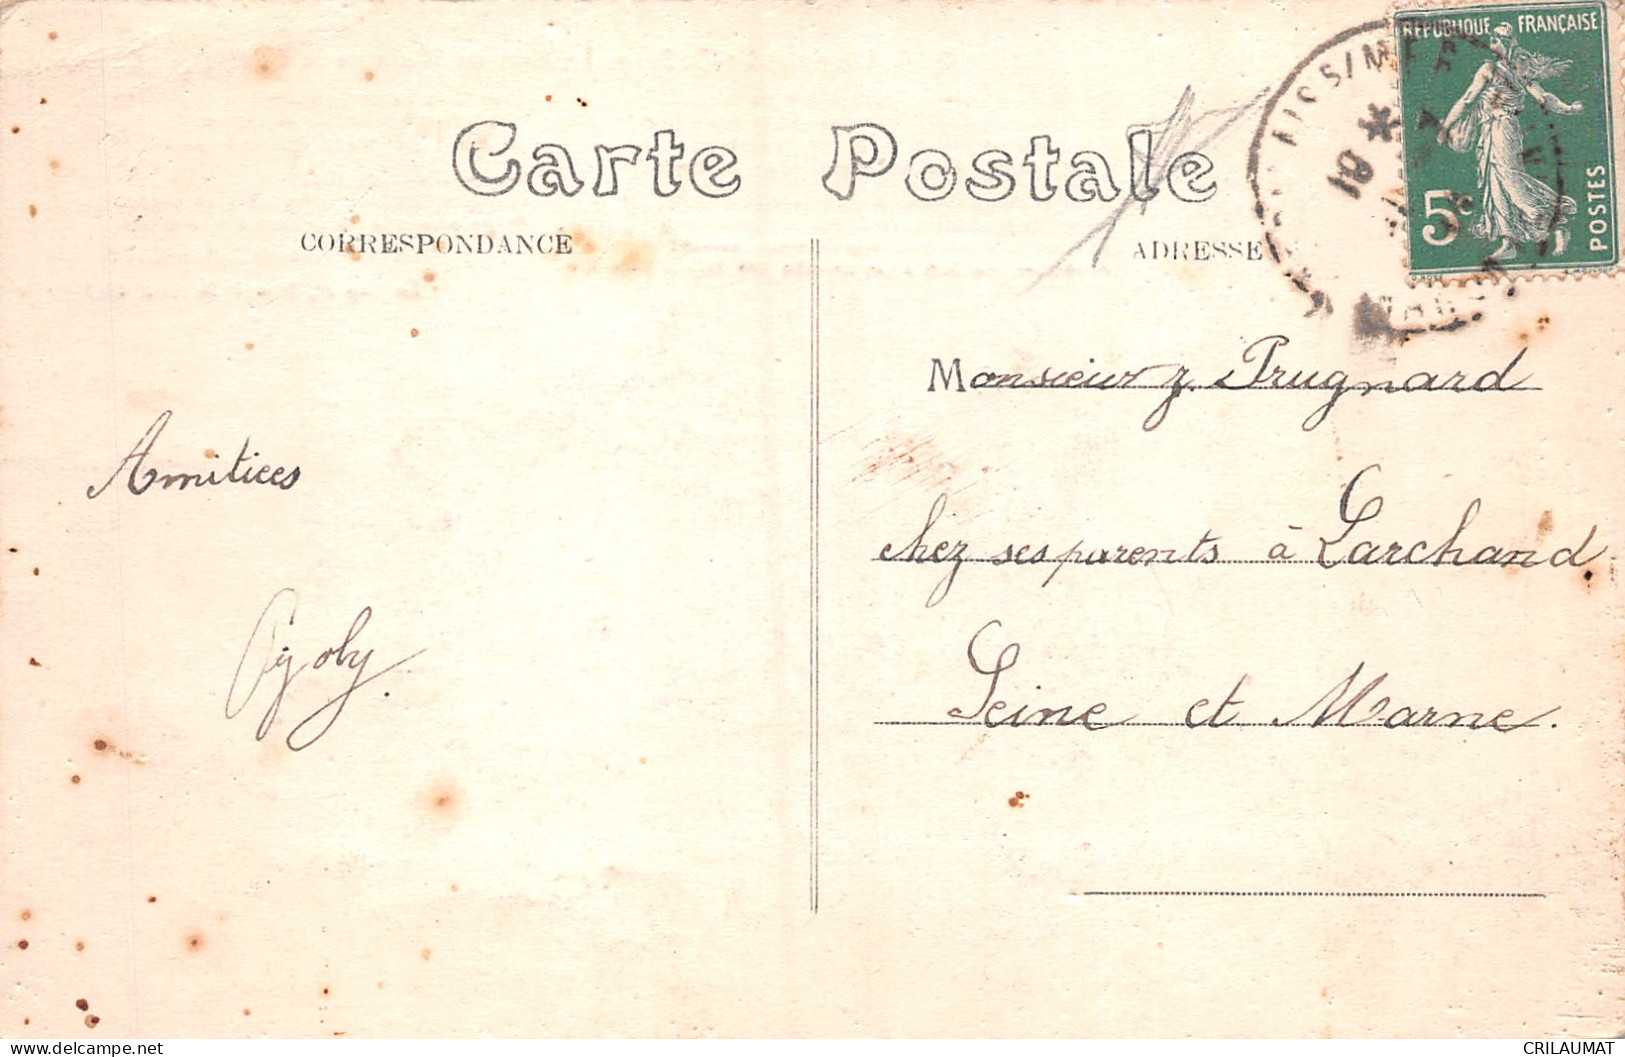 Carte Postale
CORRESPONDANCE
ADRESSE
REPUBLIQUE FRANÇAISE
5c
POSTES
19 *
Monsieur J. Prugnard
chez ses parents à Larchand
Seine et Marne.
Amitiees
www.delcampe.net
CRILAUMAT